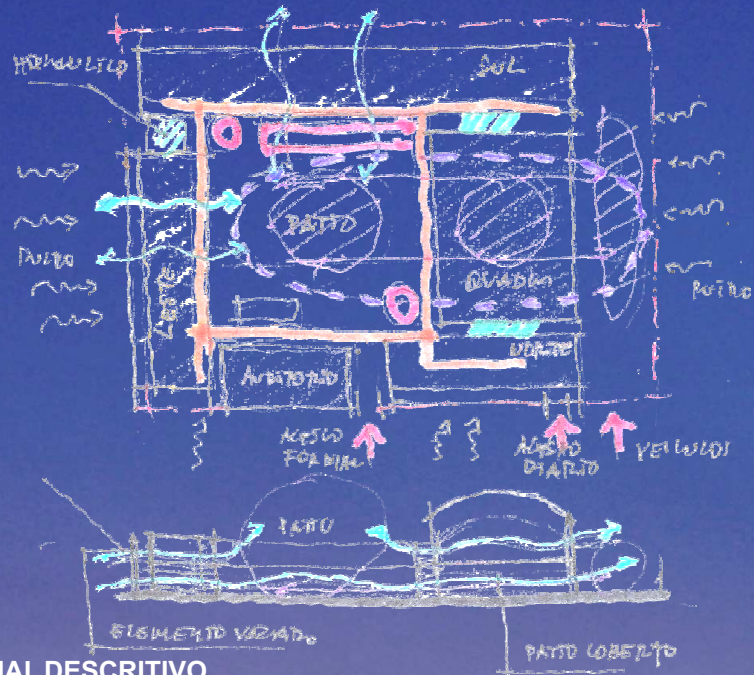 HIDRAULICO
SUL
PATIO
LESTE
QUADRA
NORTE
AUDITORIO
ACESSO
FORMAL
ACESSO
DIARIO
VEICULOS
PATIO
ELEMENTO VAZADO
PATIO COBERTO
IAL DESCRITIVO